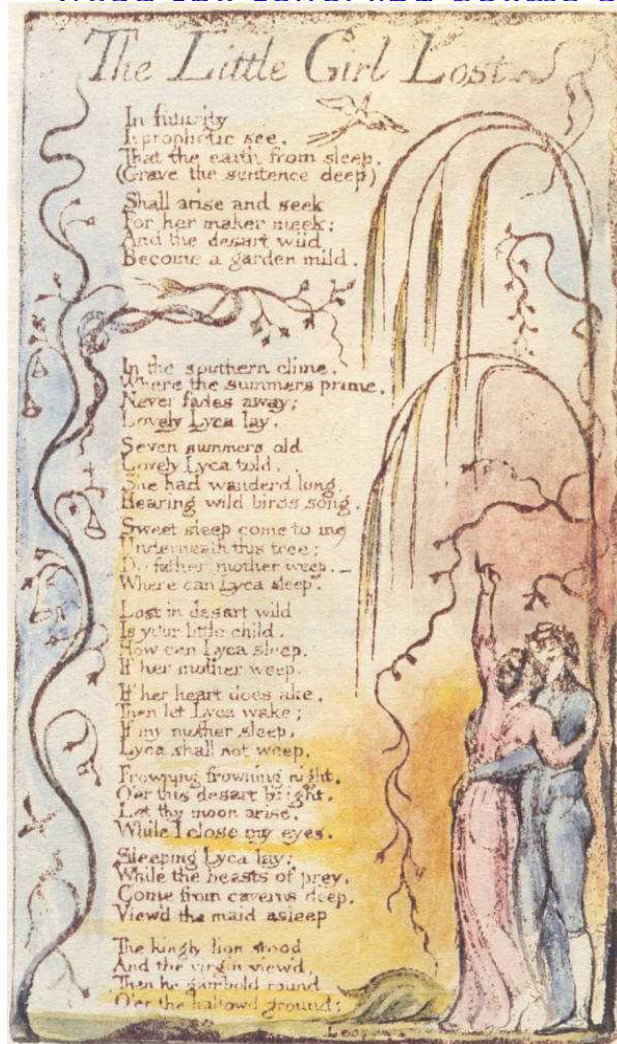 The Little Girl Lost
In futurity
I prophetic see,
That the earth from sleep,
(Grave the sentence deep)
Shall arise and seek
For her maker meek:
And the desart wild
Become a garden mild.
In the southern clime,
Where the summers prime,
Never fades away;
Lovely Lyca lay.
Seven summers old
Lovely Lyca told,
She had wanderd long,
Hearing wild birds song.
Sweet sleep come to me
Underneath this tree;
Do father, mother weep.—
Where can Lyca sleep.
Lost in desart wild
Is your little child.
How can Lyca sleep,
If her mother weep.
If her heart does ake,
Then let Lyca wake;
If my mother sleep,
Lyca shall not weep.
Frowning frowning night,
O'er this desart bright,
Let thy moon arise,
While I close my eyes.
Sleeping Lyca lay;
While the beasts of prey,
Come from caverns deep,
View'd the maid asleep
The kingly lion stood
And the virgin view'd,
Then he gambold round
O'er the hallowd ground;